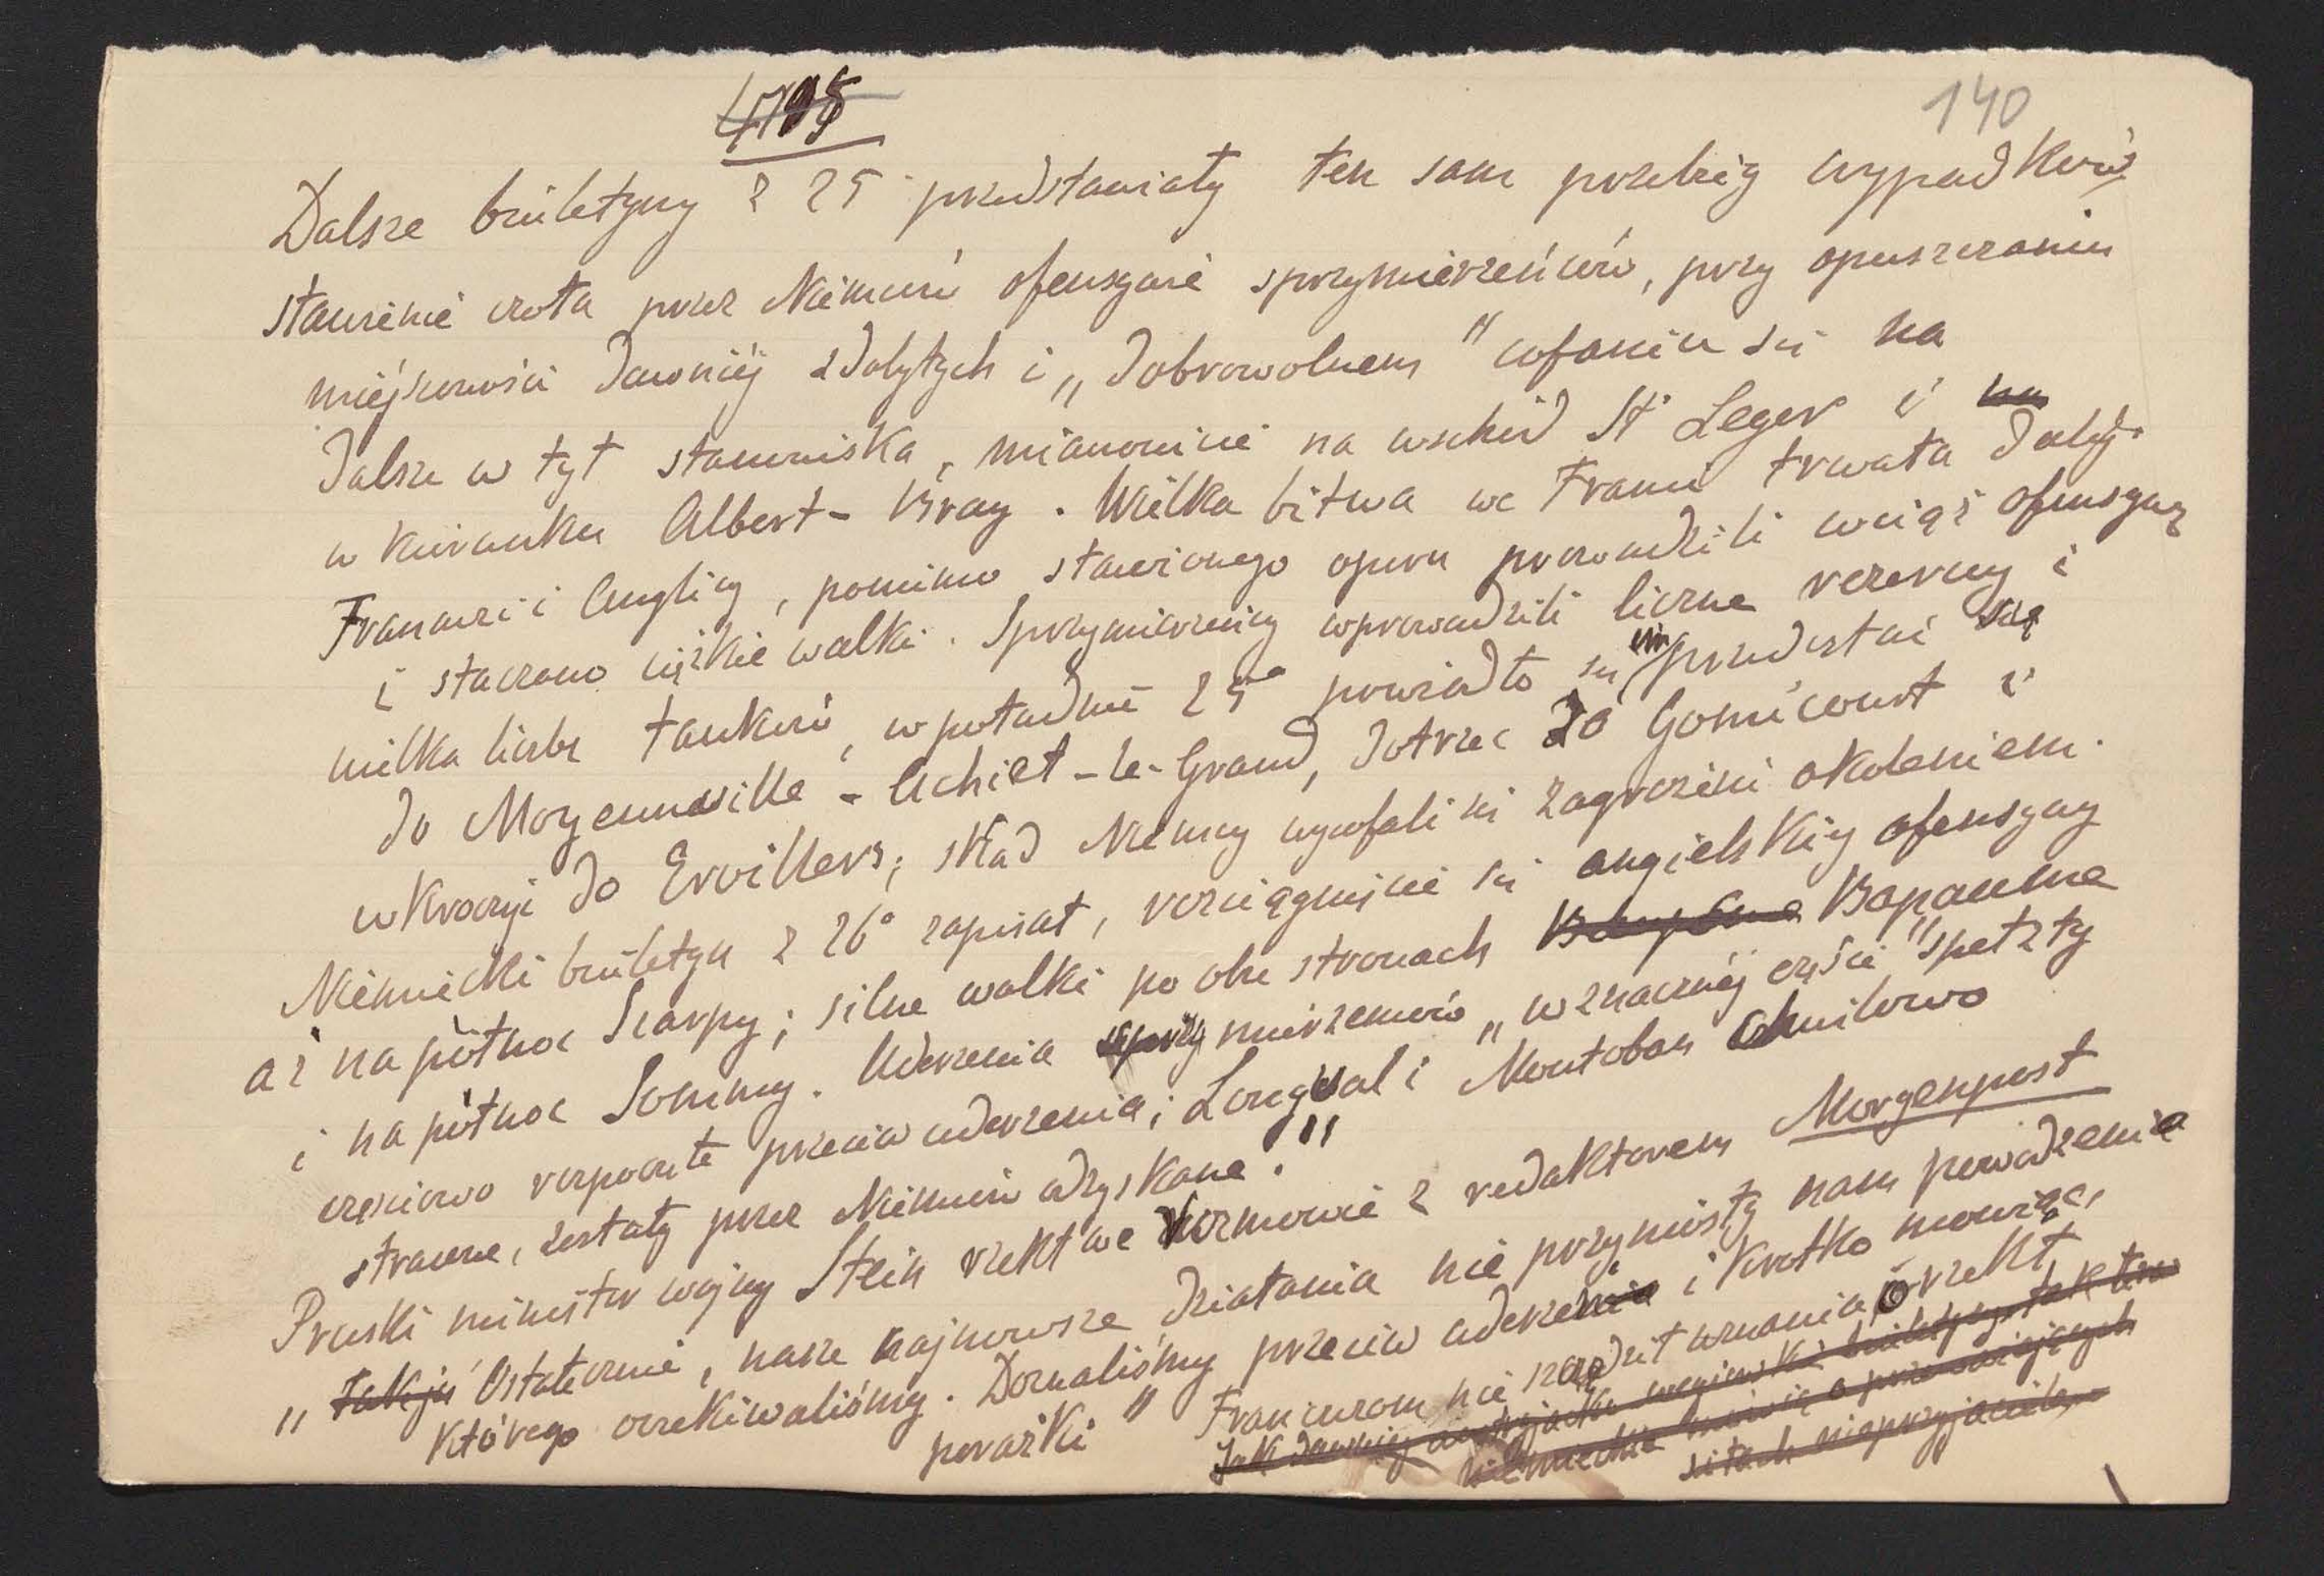 140
Dalsze biuletyny z 25 przedstawiały ten sam przebieg wypadków
stawienie czoła przez Niemców ofensywie sprzymierzeńców, przy opuszczaniu
miejscowości dawniej zdobytych i „dobrowolnem" cofaniu się na
dalsze w tył stanowiska, mianowicie na wschód St Leger i na
w kierunku Albert - Bray. Wielka bitwa we Francji trwała dalej.
Francuzi i Anglicy, pomimo stawionego oporu prowadzili wciąż ofensywę
i staczano ciężkie walki. Sprzymierzeńcy wprowadzili liczne rezerwy i
wielką liczbę tanków, w południe 25° powiodło się im przedostać się
do Moyenneville - Achiet-le-Grand, dotrzeć do Gomiécourt i
wkroczyć do Ervillers, skąd Niemcy wycofali się zagrożeni okoleniem.
Niemiecki biuletyn z 26° zapisał, rozciągnięcie się angielskiej ofensywy
aż na północ Scarpy; silne walki po obu stronach Bapaume
i na północ Sommy. Uderzenia sprzymierzeńców „w znacznej części" spełzły
częściowo rozpoczęte przeciw uderzenia; Longueval i Montoban chwilowo
stracone, zostały przez Niemców odzyskane."
Pruski minister wojny Stein rzekł we rozmowie z redaktorem Morgenpost
„Tak jes Ostatecznie, nasze najnowsze działania nie przyniosły nam powodzenia
którego oczekiwaliśmy. Doznaliśmy przeciw uderzenia i krótko mówiąc,
porażki" Francuzom nie szczędził uznania i rzekł
Jak dawniej austryjacko węgierskie biuletyny, tak teraz
niemieckie mówią o przeważających
siłach nieprzyjaciela